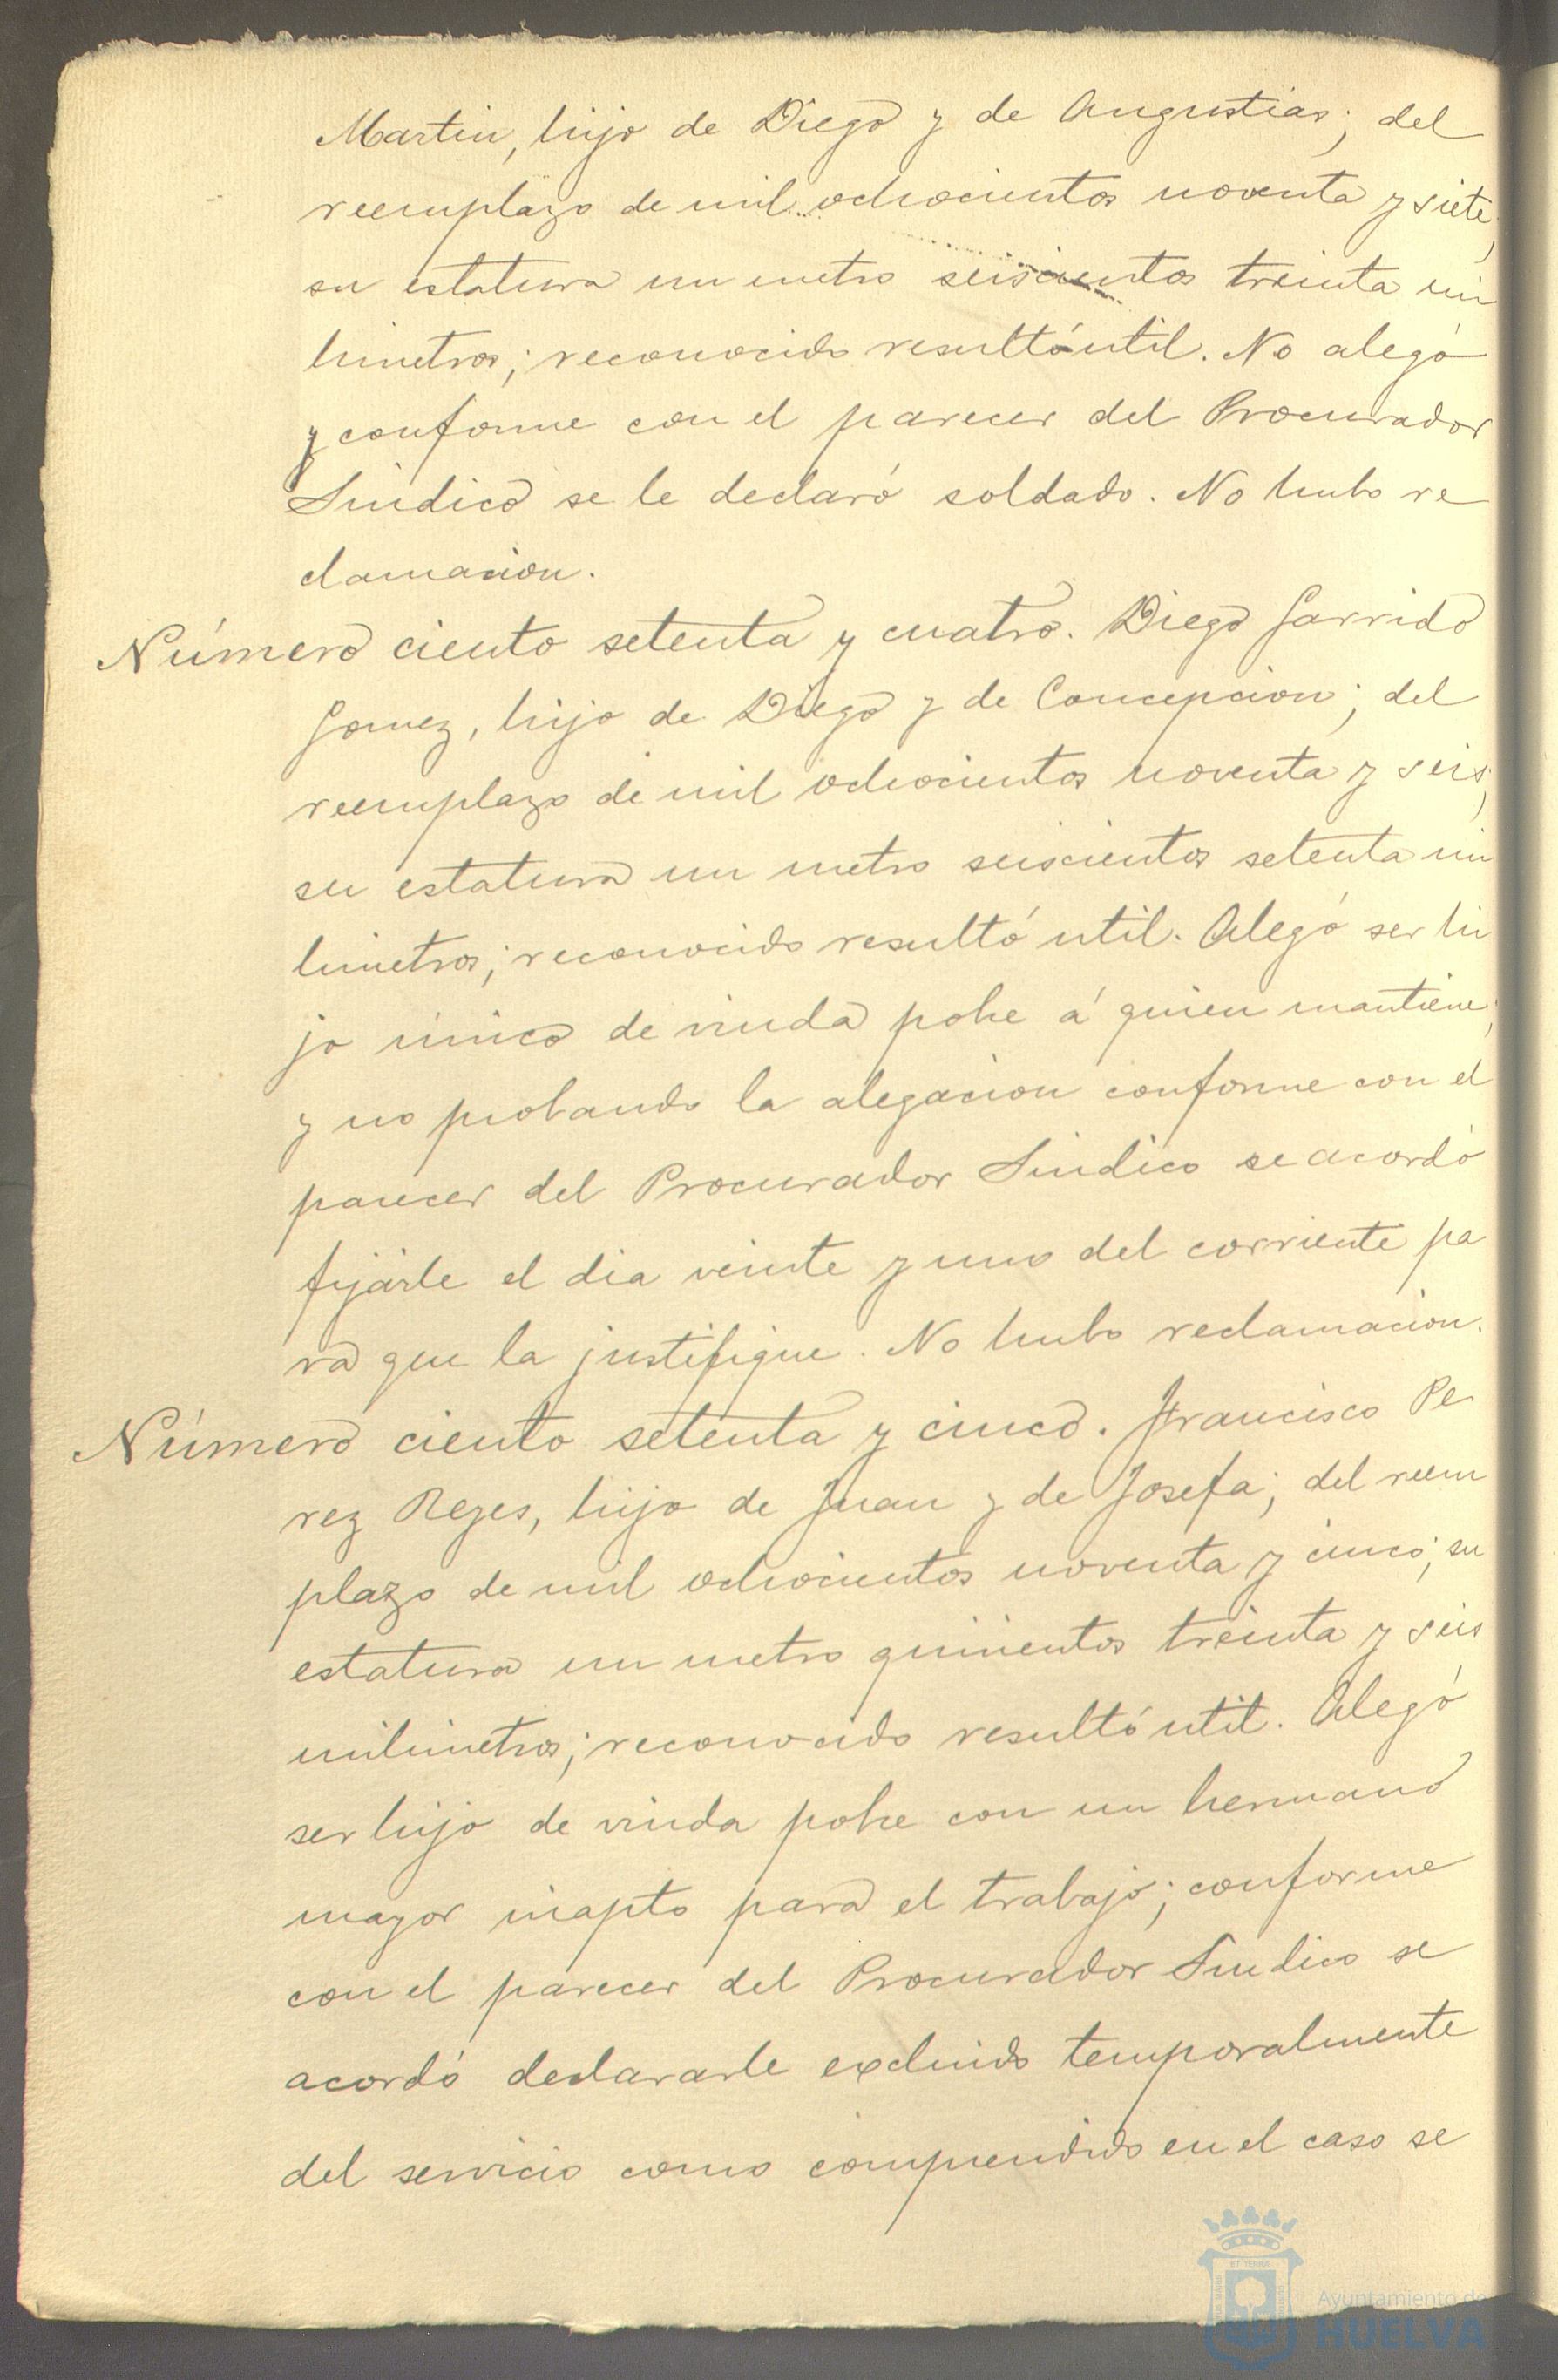 Martin, hijo de Diego y de Angustias; del
reemplazo de mil ochocientos noventa y siete;
su estatura un metro seiscientos treinta mi
limetros; reconocido resultó útil. No alegó
y conforme con el parecer del Procurador
Sindico se le declaró soldado. No hubo re
clamacion.
Número ciento setenta y cuatro. Diego Garrido
Gomez, hijo de Diego y de Concepcion; del
reemplazo de mil ochocientos noventa y seis;
su estatura un metro seiscientos setenta mi
limetros; reconocido resultó util. Alegó ser hi
jo único de viuda pobre á quien mantiene;
y no probando la alegacion conforme con el
parecer del Procurador Sindico se acordó
fijárle el dia veinte y uno del corriente pa
ra que la justifique. No hubo reclamacion.
Número ciento setenta y cinco. Francisco Pe
rez Reyes, hijo de Juan y de Josefa; del reem
plazo de mil ochocientos noventa y cinco; su
estatura un metro quinientos treinta y seis
milimetros; reconocido resultó util. Alegó
ser hijo de viuda pobre con un hermano
mayor inapto para el trabajo; conforme
con el parecer del Procurador Sindico se
acordó declararle excluido temporalmente
del servicio como comprendido en el caso se
Ayuntamiento de
HUELVA